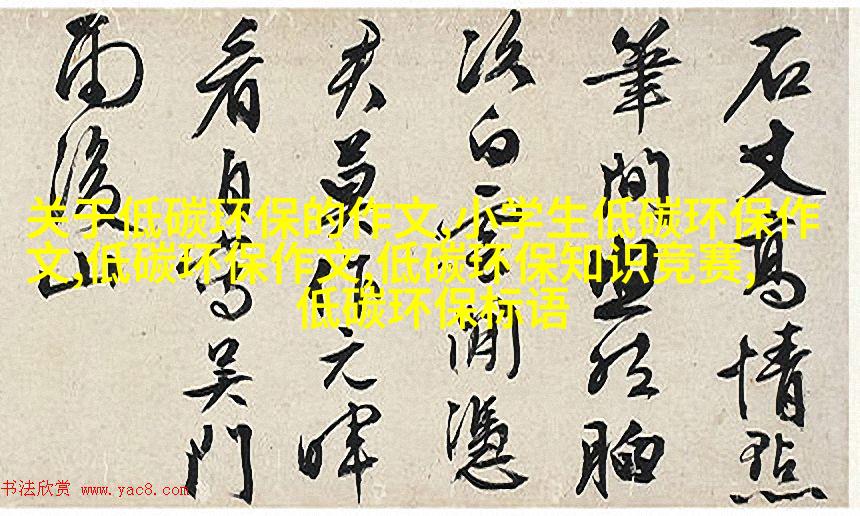 石丈高情點
筆間胸
次白雲閒憑
君莫作元暉
看自寫吳門
雨後山
关于低碳环保的作文,小学生低碳环保作
文,低碳环保作文,低碳环保知识竞赛,
低碳环保标语
书法欣赏 www.yac8.com